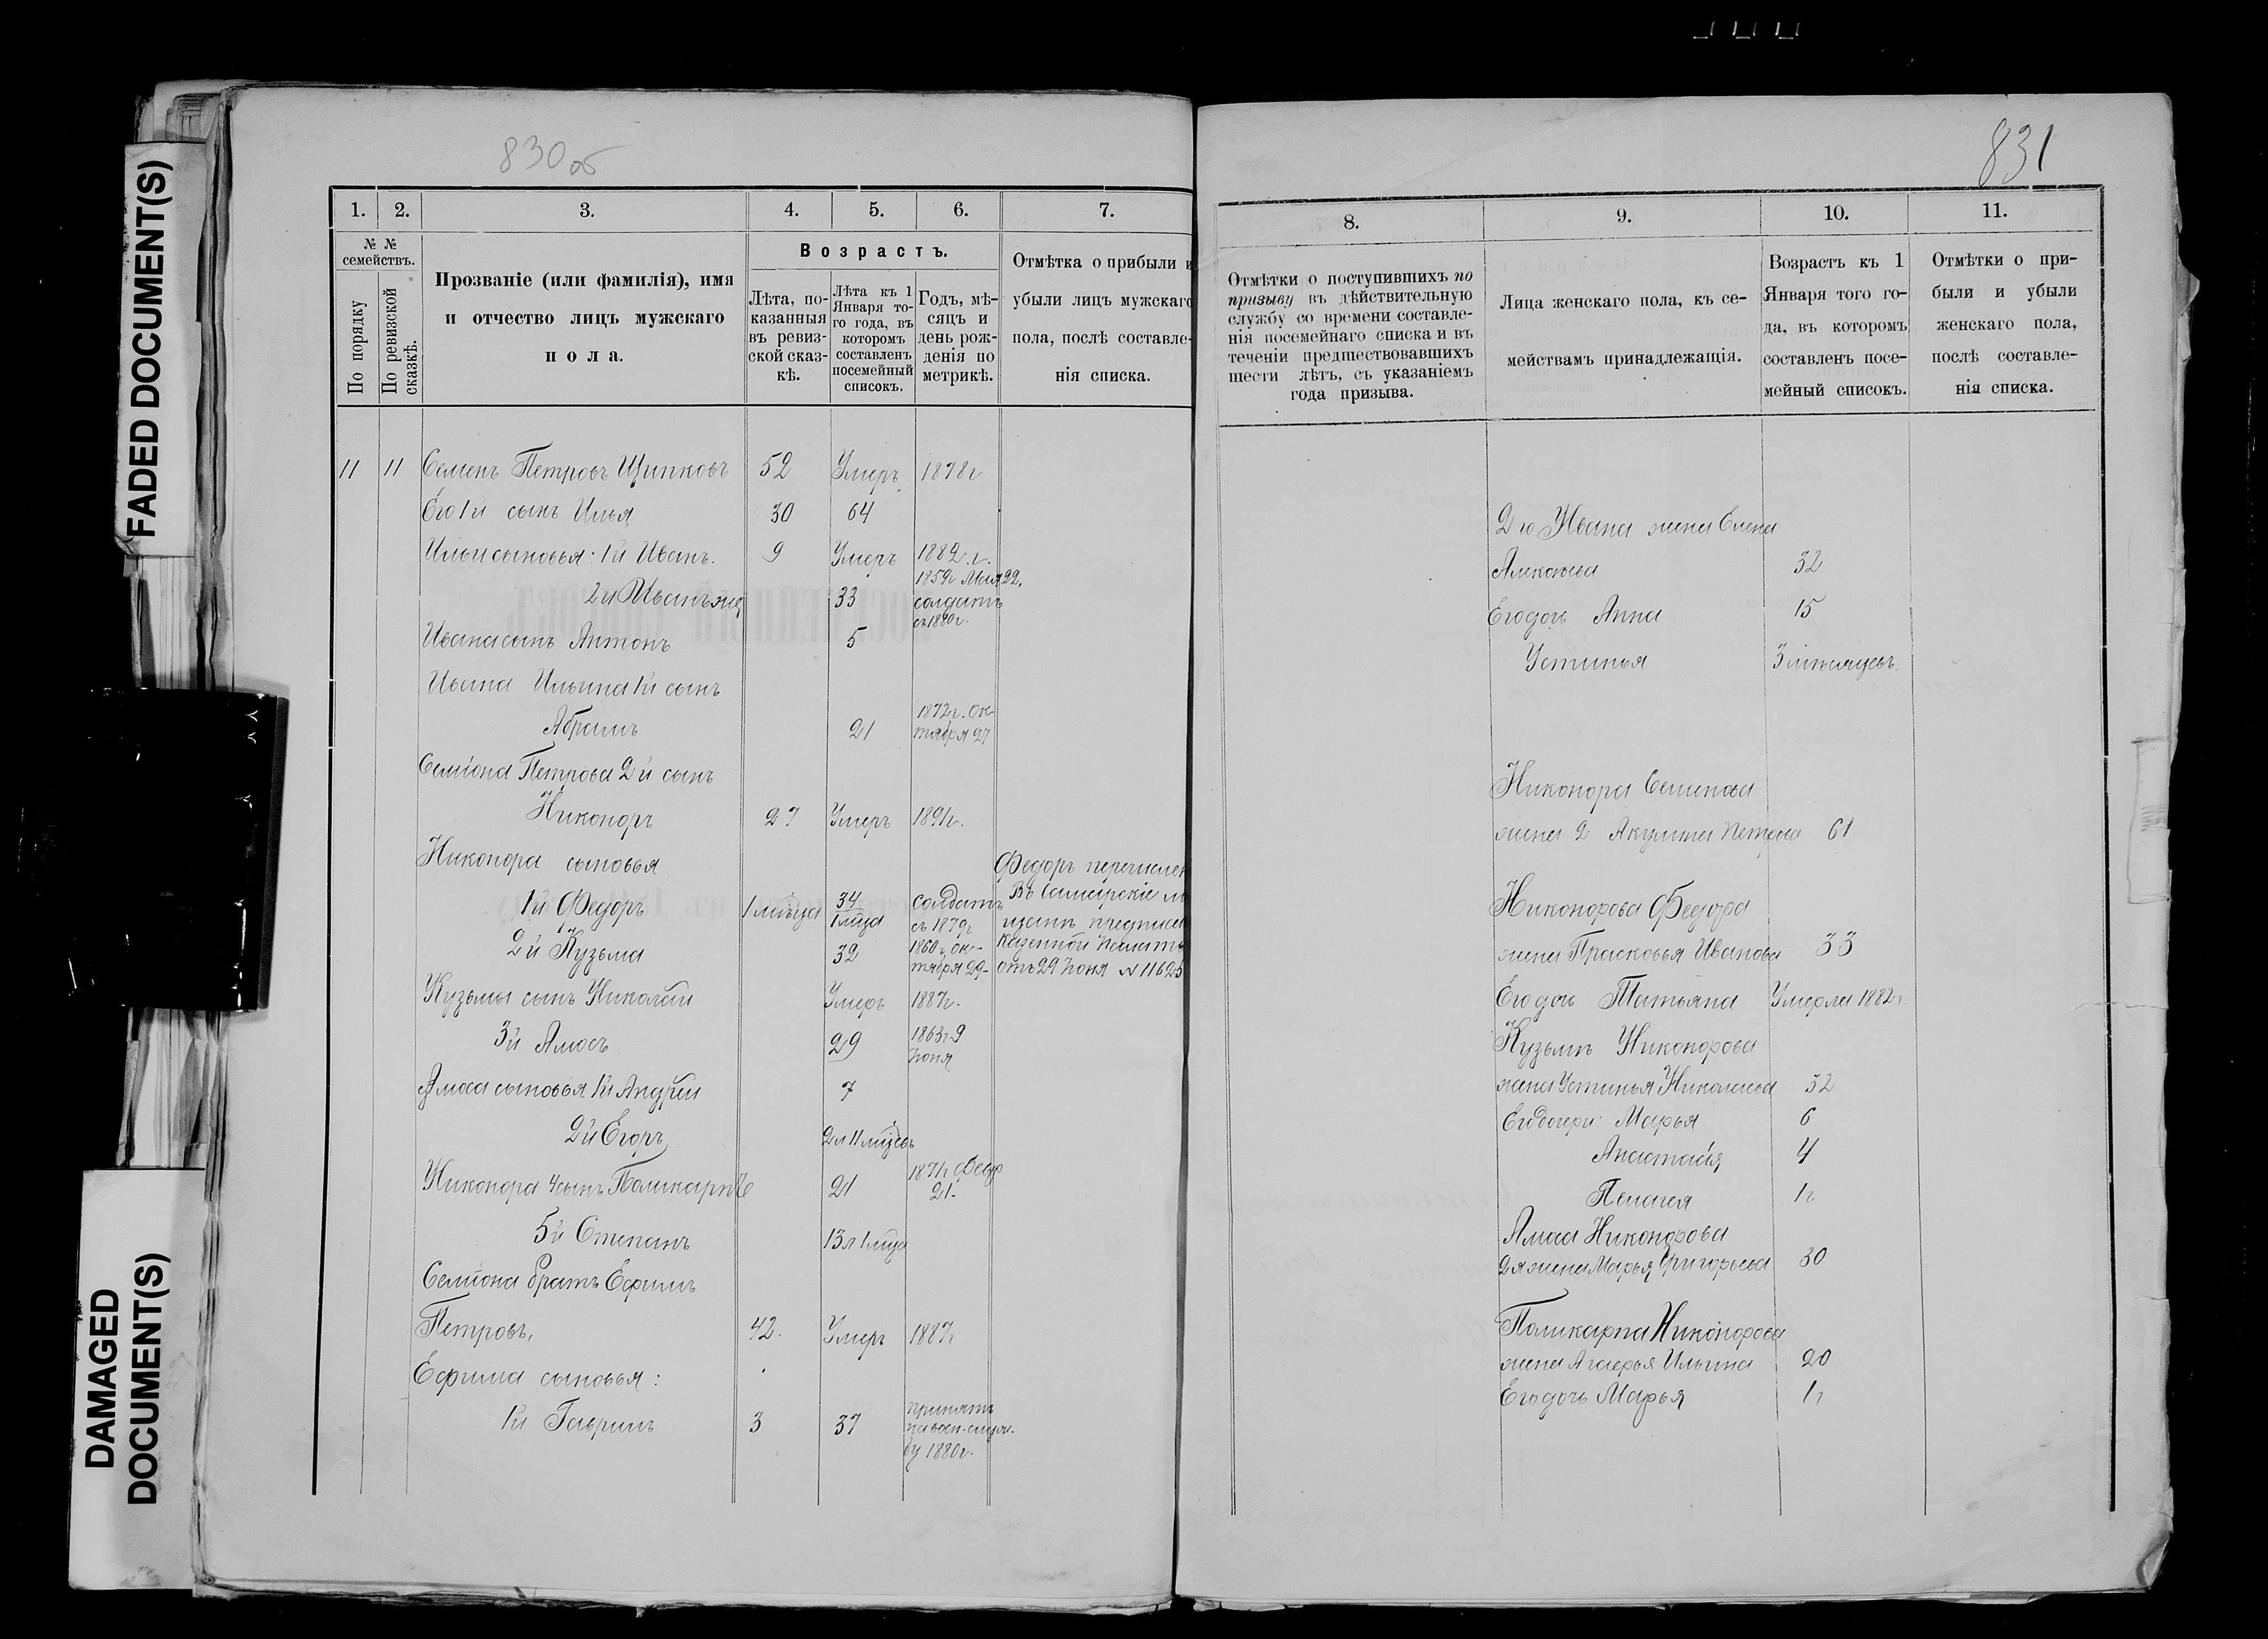 FADED DOCUMENT(S)
DAMAGED
DOCUMENT(S)
830об
1.
2.
3.
4.
5.
6.
7.
№ №
семействъ.
По порядку
По ревизской
сказкѣ.
Прозваніе (или фамилія), имя
и отчество лицъ мужскаго
пола.
Возрастъ.
Лѣта, по-
казанныя
въ ревиз-
ской сказ-
кѣ.
Лѣта къ 1
Января то-
го года, въ
которомъ
составленъ
посемейный
списокъ.
Годъ, мѣ-
сяцъ и
день рож-
денія по
метрикѣ.
Отмѣтка о прибыли и
убыли лицъ мужскаго
пола, послѣ составле-
нія списка.
11 11 Семенъ Петровъ Щипковъ 52 Умеръ 1878г
Его 1й сынъ Илья 30 64
Ильи сыновья: 1й Иванъ. 9 Умеръ 1882.г.
2й Иванъ же 33 1859г Мая 22.
солдатъ
съ 1880г.
Ивана сынъ Антонъ 5
Ивана Ильина 1й сынъ
Абрамъ 21 1872г. Ок-
тября 27
Семіона Петрова 2й сынъ
Никоноръ 27 Умеръ 1891г.
Никонора сыновья
1й Федоръ 1 мѣсца 34 1 мѣца солдатъ
съ 1879г
2й Кузьма 32 1860г. ок-
тября 29-
Федоръ перечислен
Въ Самарскіе м
щане предписа
Казенной Палаты
отъ 29 Іюня N 11625
Кузьмы сынъ Николай Умеръ 1887г.
3й Амосъ 29 1863г 9
Іюня
Амоса сыновья 1й Андрей 7
2й Егоръ 2л 11 мцевъ
Никонора 4 сынъ Поликарпъ 21 1871г Февр
21-
5й Степанъ 13л 1 мца
Семіона братъ Ефимъ
Петровъ, 42. Умеръ 1887г
Ефима сыновья:
1й Гаврилъ 3 37 принятъ
на воен. служ-
бу 1880г.
831
8.
9.
10.
11.
Отмѣтки о поступившихъ по
призыву въ дѣйствительную
службу со времени составле-
нія посемейнаго списка и въ
теченіи предшествовавшихъ
шести лѣтъ, съ указаніемъ
года призыва.
Лица женскаго пола, къ се-
мействамъ принадлежащія.
Возрастъ къ 1
Января того го-
да, въ которомъ
составленъ посе-
мейный списокъ.
Отмѣтки о при-
были и убыли
женскаго пола,
послѣ составле-
нія списка.
2го Ивана жена Елена
32
Его дочь Анна 15
Устинья 3 мѣсяцевъ.
Никонора Семенова
жена 2 Акулина Петрова 61
Никонорова Федора
жена Прасковья Иванова 33
Его дочь Татьяна Умерла 1882г.
Кузьмы Никонорова
жена Устинья Николаева 32
Его дочери: Марья 6
Анастасія 4
Пелагея 1г
Амоса Никонорова
2я жена Марья Григорьева 30
Поликарпа Никонорова
жена Агафья Ильина 20
Его дочь Марья 1г